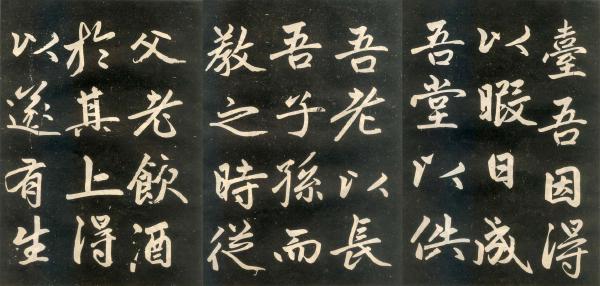 臺吾因得
以暇日成
吾堂以供
吾老以長
吾子孫而
教之時從
父老飲酒
於其上得
以遂有生